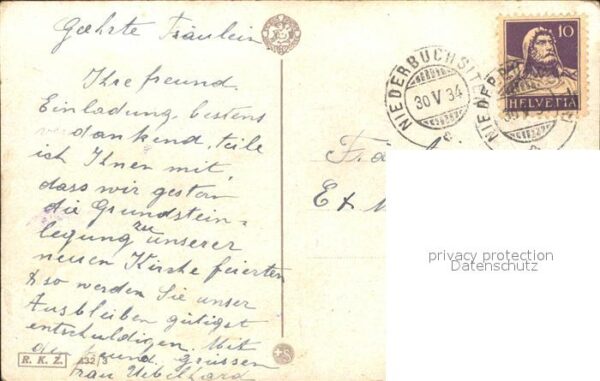 Geehrte Fräulein
Ihre freund.
Einladung bestens
verdankend, teile
ich Ihnen mit,
dass wir gestern
die Grundstein-
legung zu unserer
neuen Kirche feierten
& so werden Sie unser
Ausbleiben gütigst
entschuldigen. Mit
freund. grüssen
Frau Uebelhard
R. K. Z. 432/3
NIEDERBUCHSITEN
30 V 34
10
HELVETIA
privacy protection
Datenschutz